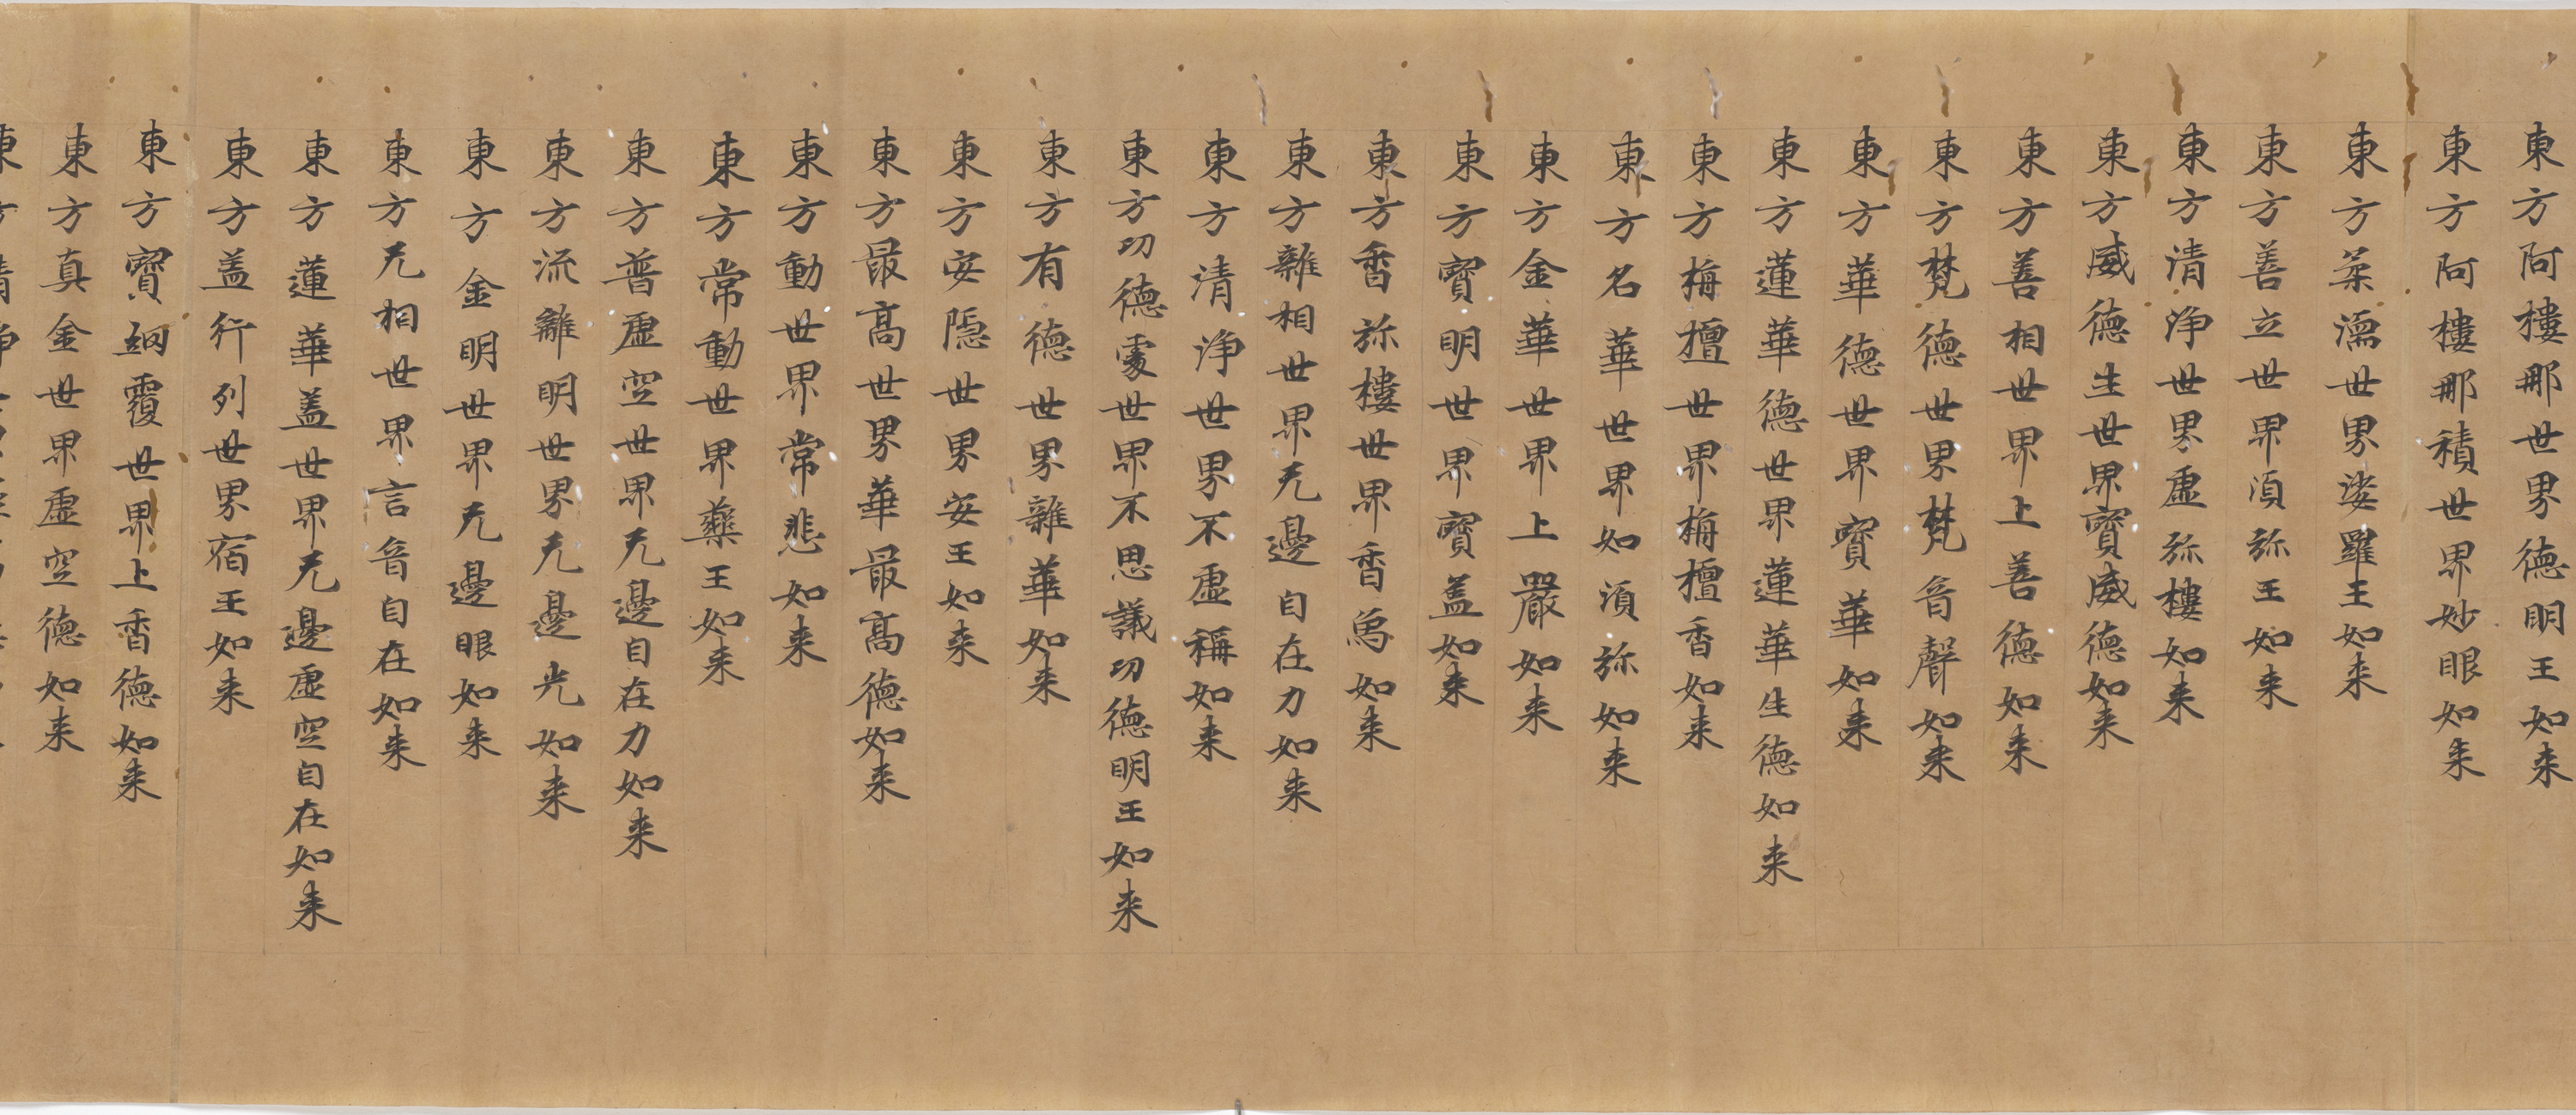 東方阿樓那世界德明王如来
東方阿樓那積世界妙眼如来
東方柔濡世界娑羅王如来
東方善立世界湏弥王如来
東方清浄世界虚弥樓如来
東方威德生世界寳威德如来
東方善相世界上善德如来
東方梵德世界梵音聲如来
東方華德世界寳華如来
東方蓮華德世界蓮華生德如来
東方栴檀世界栴檀香如来
東方名華世界如湏弥如来
東方金華世界上嚴如来
東方寳明世界寳盖如来
東方香弥樓世界香為如来
東方雜相世界无邊自在力如来
東方清浄世界不虚稱如来
東方功德處世界不思議功德明王如来
東方有德世界雜華如来
東方安隠世界安王如来
東方最髙世界華最髙德如来
東方動世界常悲如来
東方常動世界藥王如来
東方普虚空世界无邊自在力如来
東方流離明世界无邊光如来
東方金明世界无邊眼如来
東方无相世界言音自在如来
東方蓮華盖世界无邊虚空自在如来
東方盖行列世界宿王如来
東方寳網覆世界上香德如来
東方真金世界虚空德如来
東方清浄世界